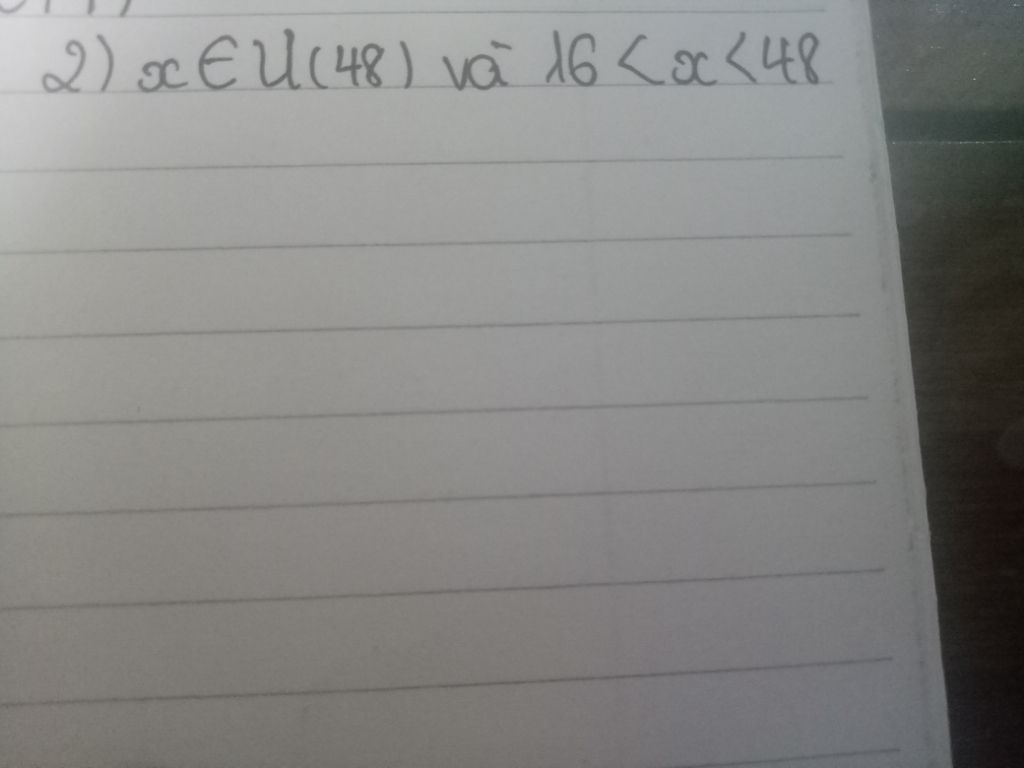 2) x ∈ U(48) và 16 < x < 48